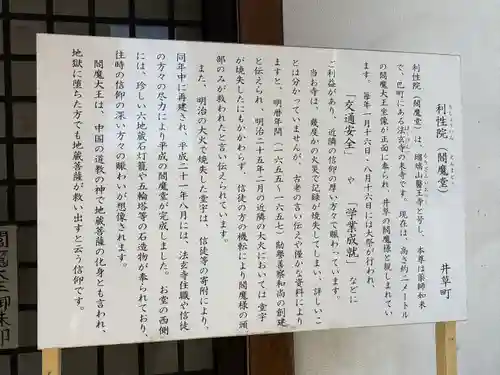 りしょういん　えんまどう
利性院（閻魔堂）
井草町
利性院（閻魔堂）は、瑠璃山醫王寺と号し、本尊は薬師如来
で、巴町にある法玄寺の末寺です。現在は、高さ約二メートル
の閻魔大王坐像が正面に奉られ、井草の閻魔様と親しまれてい
ます。毎年一月十六日・八月十六日には大祭が行われ、
「交通安全」や「学業成就」などに
ご利益があり、近隣の信仰の厚い方々で賑わっています。
当お寺は、幾度かの火災で記録が焼失してしまい、詳しいこ
とは分かっていませんが、古老の言い伝えや僅かな資料により
ますと、明暦年間（一六五五〜一六五七）勘譽善察和尚の創建
と伝えられ、明治二十五年二月の近隣の大火においては堂宇
が焼失したにもかかわらず、信徒の方の機転により閻魔様の頭
部のみが救われたと言い伝えられています。
また、明治の大火で焼失した堂宇は、信徒等の寄附により、
同年中に再建され、平成二十一年八月には、法玄寺住職や信徒
の方々の尽力により平成の閻魔堂が完成しました。お堂の西側
には、珍しい六地蔵石灯籠や五輪塔等の石造物が奉られており、
往時の信仰の深い方々の賑わいが想像されます。
閻魔大王は、中国の道教の神で地蔵菩薩の化身とも言われ、
地獄に堕ちた方でも地蔵菩薩が救い出すと云う信仰です。
閻魔大王御朱印